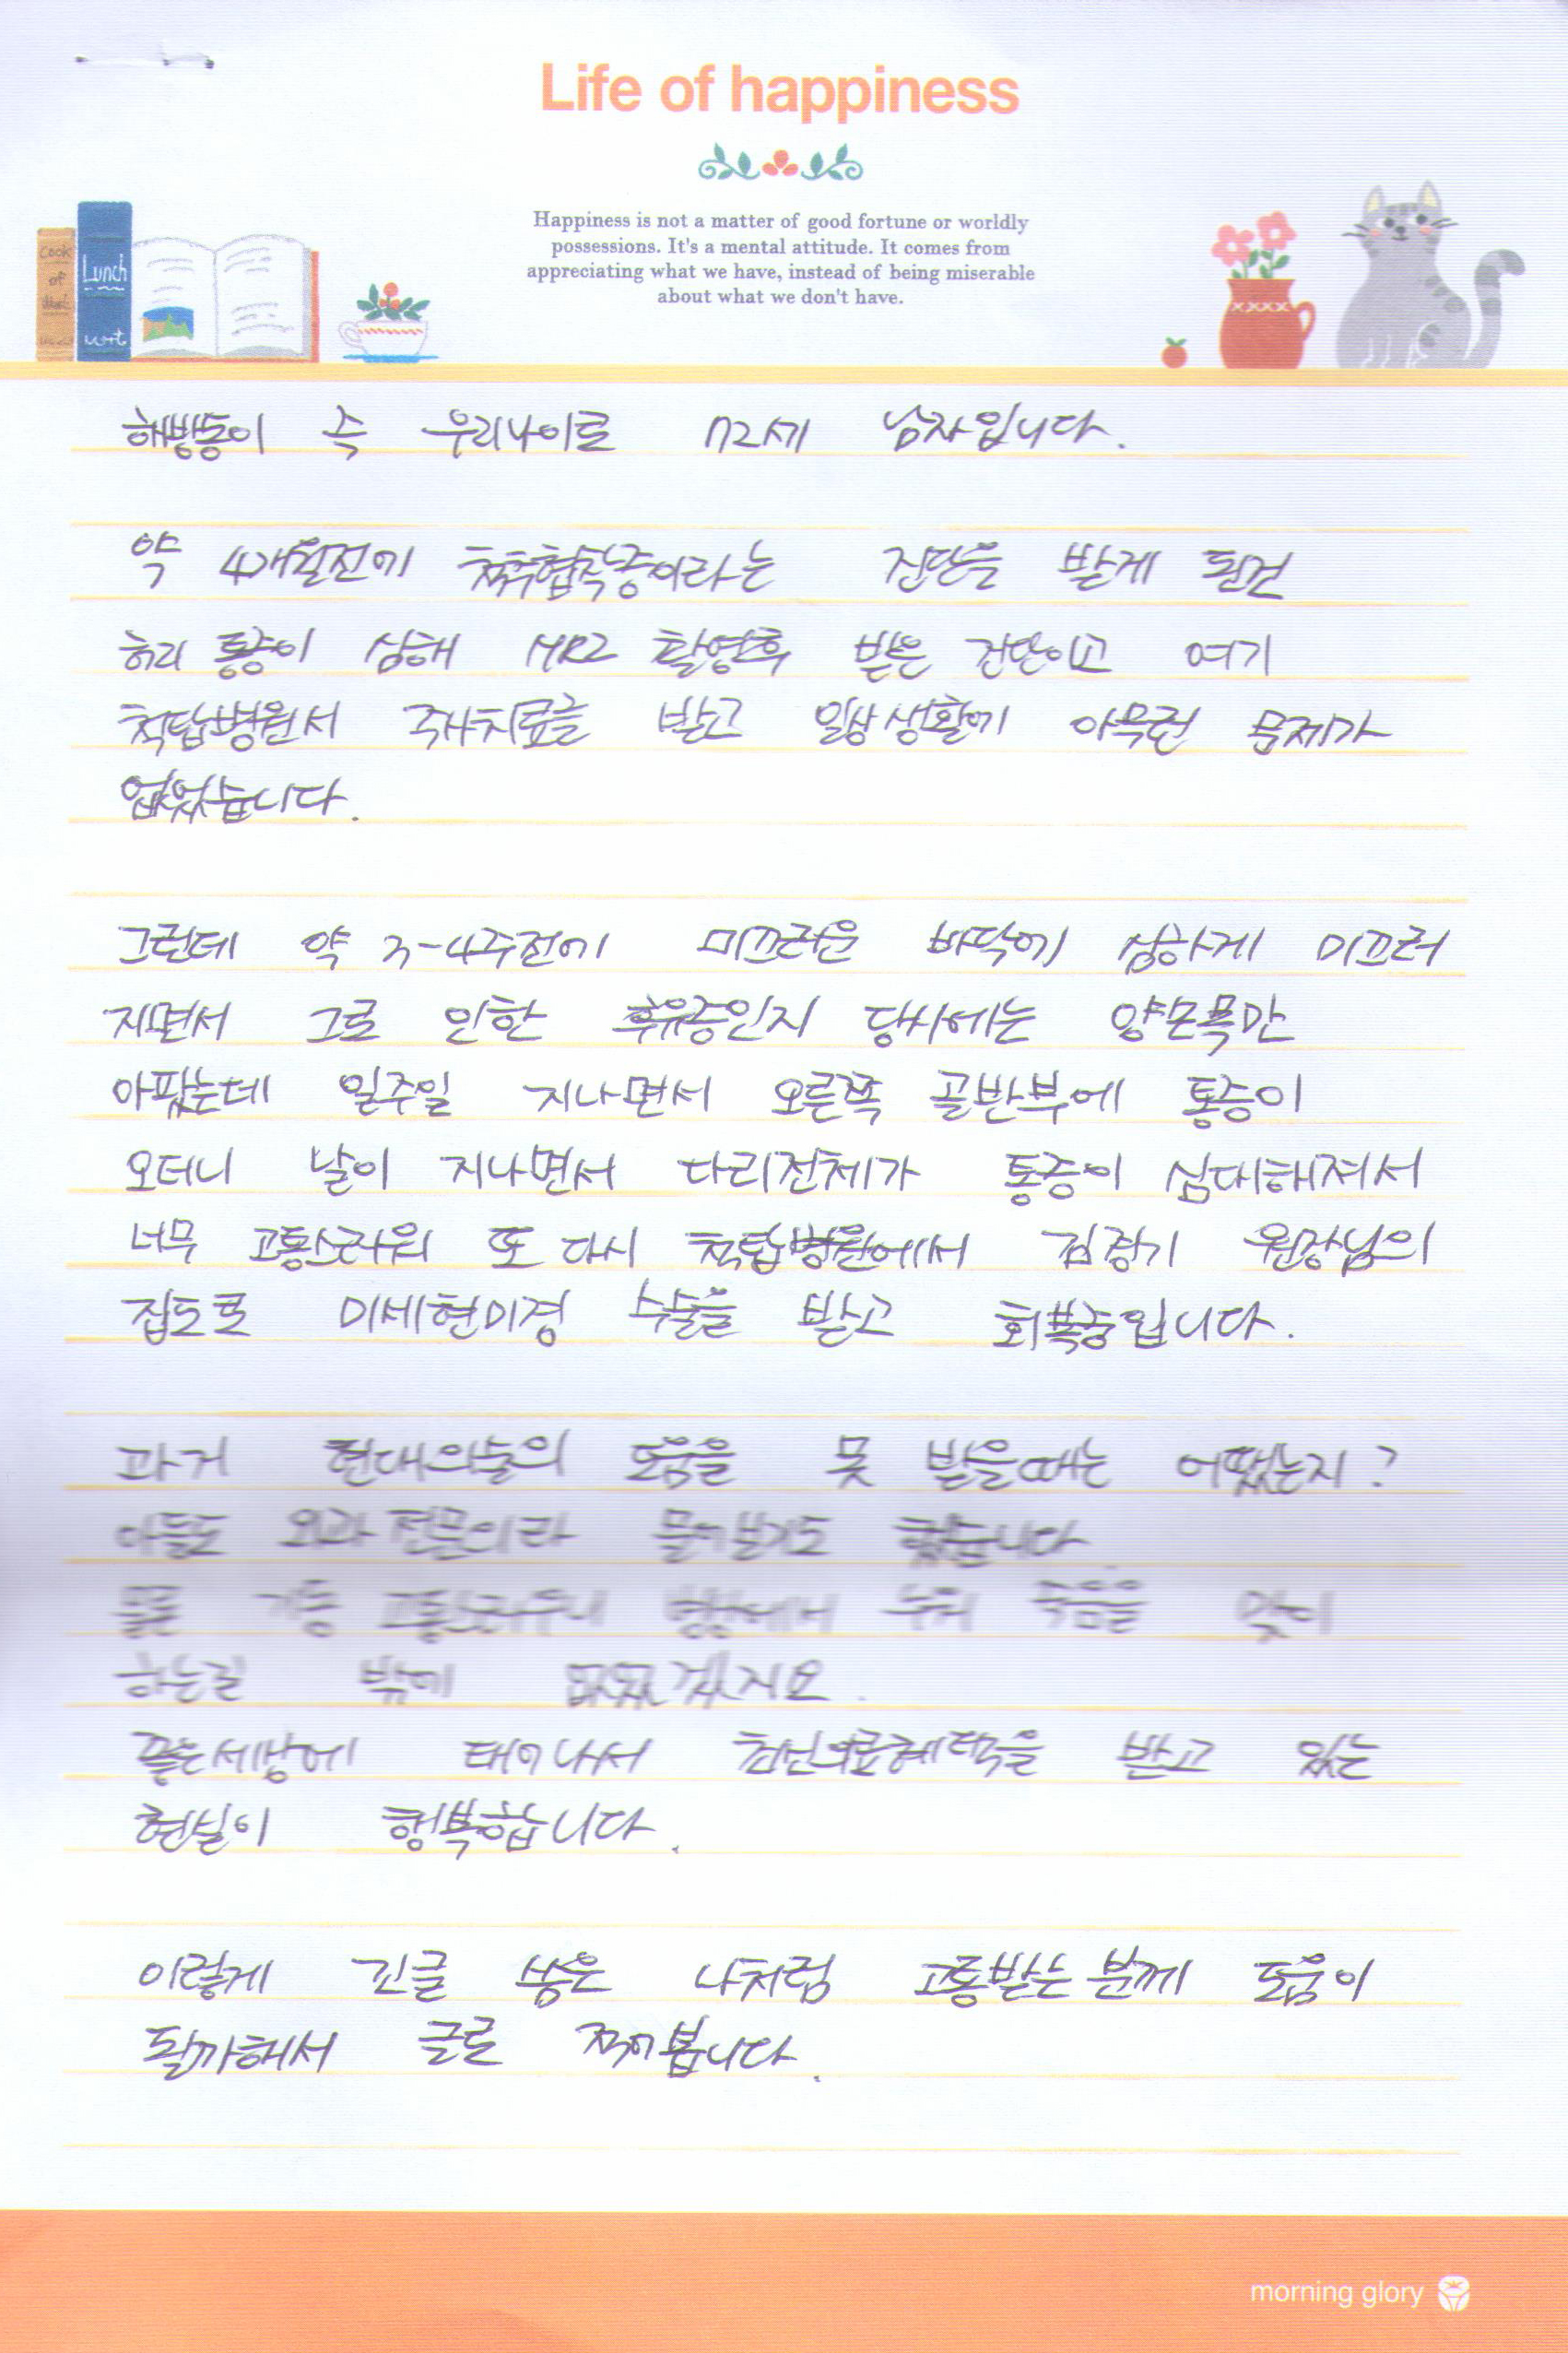 Life of happiness
Happiness is not a matter of good fortune or worldly
possessions. It's a mental attitude. It comes from
appreciating what we have, instead of being miserable
about what we don't have.
Cook
of
Lunch
해방동이 즉 우리나이로 72세 남자입니다.
약 4개월전에 척추협착증이라는 진단을 받게 된건
허리 통증이 심해 MRI 촬영후 받은 진단이고 여기
척탑병원서 주사치료를 받고 일상생활에 아무런 문제가
없었습니다.
그런데 약 3-4주전에 미끄러운 바닥에 심하게 미끄러
지면서 그로 인한 후유증인지 당시에는 양손목만
아팠는데 일주일 지나면서 오른쪽 골반부에 통증이
오더니 날이 지나면서 다리전체가 통증이 심대해져서
너무 고통스러워 또 다시 척탑병원에서 김정기 원장님의
집도로 미세현미경 수술을 받고 회복중입니다.
과거 현대의술의 도움을 못 받을때는 어땠는지?
아들도 외과 전문의라 물어보기도 했습니다.
물론 거동 고통스러우니 병상에서 누워 죽음을 맞이
하는길 밖에 없었겠지요.
좋은세상에 태어나서 최신의료혜택을 받고 있는
현실이 행복합니다.
이렇게 긴글 쓴 나처럼 고통받는 분께 도움이
될까해서 글로 적어봅니다.
morning glory